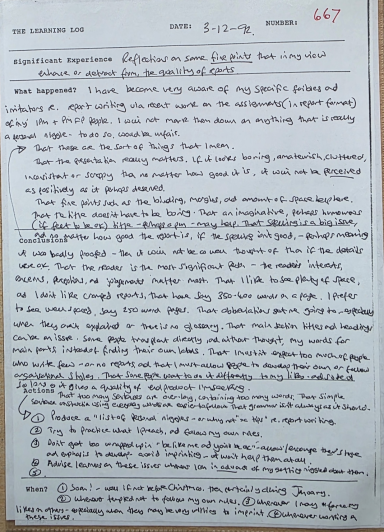 667
THE LEARNING LOG DATE: 3-12-92. NUMBER:
Significant Experience Reflections on some fine points that in my view
enhance or detract from, the quality of reports
What happened? I have become very aware of my specific foibles and
irritators re. report writing via recent work on the assignments (in report format)
of my IPM + PMFP people. I will not mark them down on anything that is really
a personal niggle - to do so, would be unfair.
That these are the sort of things that I mean.
That the presentation really matters. If it looks boring, amateurish, cluttered,
inconsistent or scrappy then no matter how good it is, it will not be perceived
as positively as it perhaps deserved.
That fine points such as the binding, margins, and amount of space help here.
That the title doesn't have to be boring. That an imaginative, perhaps humorous
(if felt to be ok) title - perhaps a pun - may help. That spelling is a big issue,
and no matter how good the report is, if the spelling isn't good, - perhaps meaning
Conclusions
it was badly proofed - then it will not be as well thought of than if the details
were ok. That the reader is the most significant person - the reader's interests,
concerns, and judgements matter most. That I like to see plenty of space,
and I don't like cramped reports, that have say 350-600 words on a page. I prefer
to see well spaced, say 250 word pages. That abbreviations get me going - especially
when they aren't explained or there is no glossary. That main section titles and headings
can be an issue. Some people transplant directly and without thought, my words for
main parts instead of finding their own labels. That I mustn't expect too much of people
who write few - or no reports and that I must allow people to develop their own or follow
organisational styles. That some people want to do it differently to my likes - and indeed
so long as it gives a quality of end product I'm seeking
Actions That too many sentences are overlong, containing too many words. That simple
sentence
① Produce a "list of personal niggles - or why not on tips" re. report writing.
② Try to practice what I preach, and follow my own rules.
③ Don't get too wrapped up in "be like me and you'll be ok"
and emphasis to develop - avoid imprinting - it won't help them at all.
④ Advise learners on these issues that I can in advance of my getting niggled about them.
When? ① Soon! - well if not before Christmas, then certainly during January.
② Whenever tempted not to follow my own rules. ③ Whenever I
likes in others - especially when they may be very willing to imprint. ④ Whenever working on
these issues.